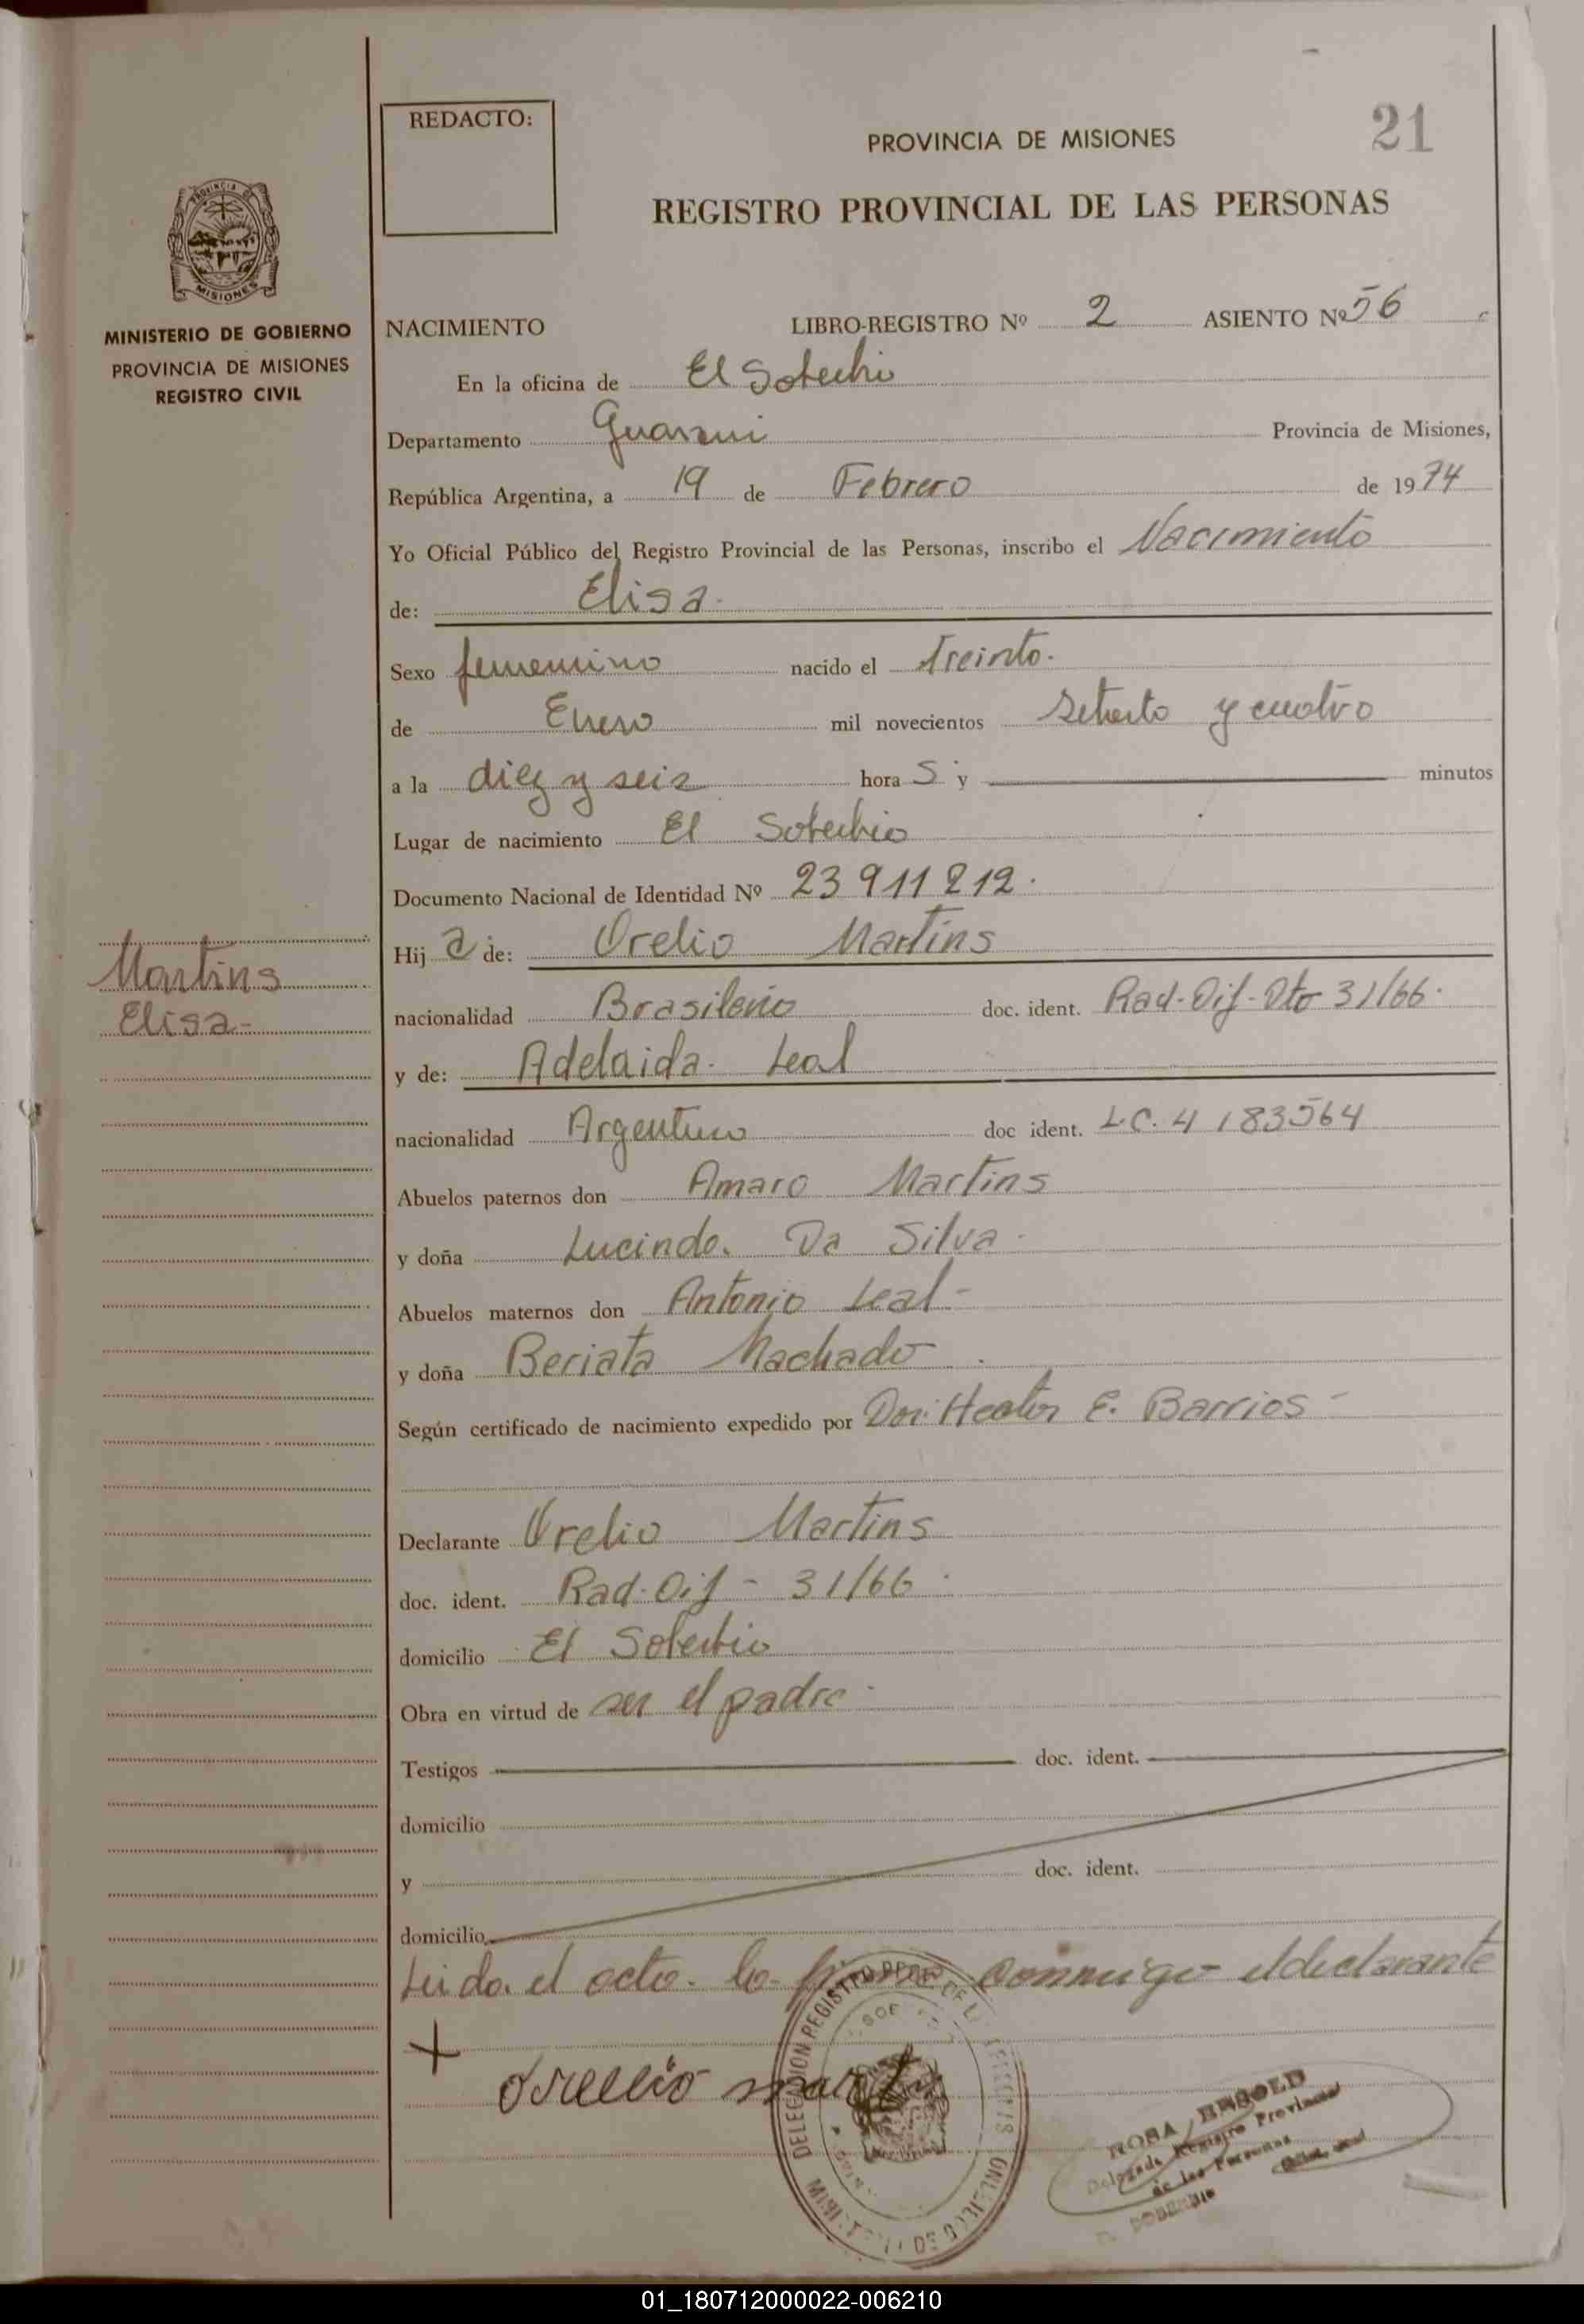 REDACTO:
PROVINCIA DE MISIONES
21
REGISTRO PROVINCIAL DE LAS PERSONAS
PROVINCIA DE
MISIONES
MINISTERIO DE GOBIERNO
PROVINCIA DE MISIONES
REGISTRO CIVIL
NACIMIENTO LIBRO-REGISTRO Nº 2 ASIENTO Nº 56
En la oficina de El Soberbio
Departamento Guarani Provincia de Misiones,
República Argentina, a 19 de Febrero de 1974
Yo Oficial Público del Registro Provincial de las Personas, inscribo el Nacimiento
de: Elisa.
Sexo femenino nacido el treinta.
de Enero mil novecientos setenta y cuatro
a la diez y seis hora S y minutos
Lugar de nacimiento El Soberbio
Documento Nacional de Identidad Nº 23 911 212.
Martins
Elisa-
Hij a de: Orelio Martins
nacionalidad Brasileño doc. ident. Rad-Dif-Dto 31/66.
y de: Adelaida. Leal
nacionalidad Argentina doc ident. L.C. 4 183564
Abuelos paternos don Amaro Martins
y doña Lucinda. Da Silva.
Abuelos maternos don Antonio Leal-
y doña Beriata Machado
Según certificado de nacimiento expedido por Don: Hector E. Barrios-
Declarante Orelio Martins
doc. ident. Rad. Dif - 31/66.
domicilio El Soberbio
Obra en virtud de ser el padre.
Testigos doc. ident.
domicilio
y doc. ident.
domicilio
Leida. el acta. la firma conmigo el declarante
+
DELEGACION REGISTRO
ROSA
Delegada Registro Provincial
de las Personas
SOBERBIO
01_180712000022-006210